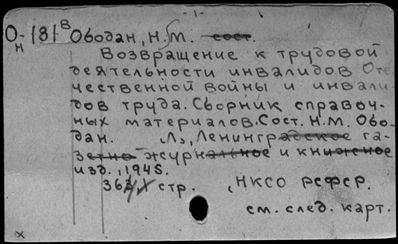 - 1 -
О-181 В Ободан, Н.М. сост.
н
Возвращение к трудовой
деятельности инвалидов Оте
чественной войны и инвали-
дов труда. Сборник справоч-
ных материалов. Сост. Н.М. Обо-
дан. Л., Ленинградское га-
зетно журнальное и книжное
изд., 1945.
362 стр. НКСО РСФСР.
см. след. карт.
x